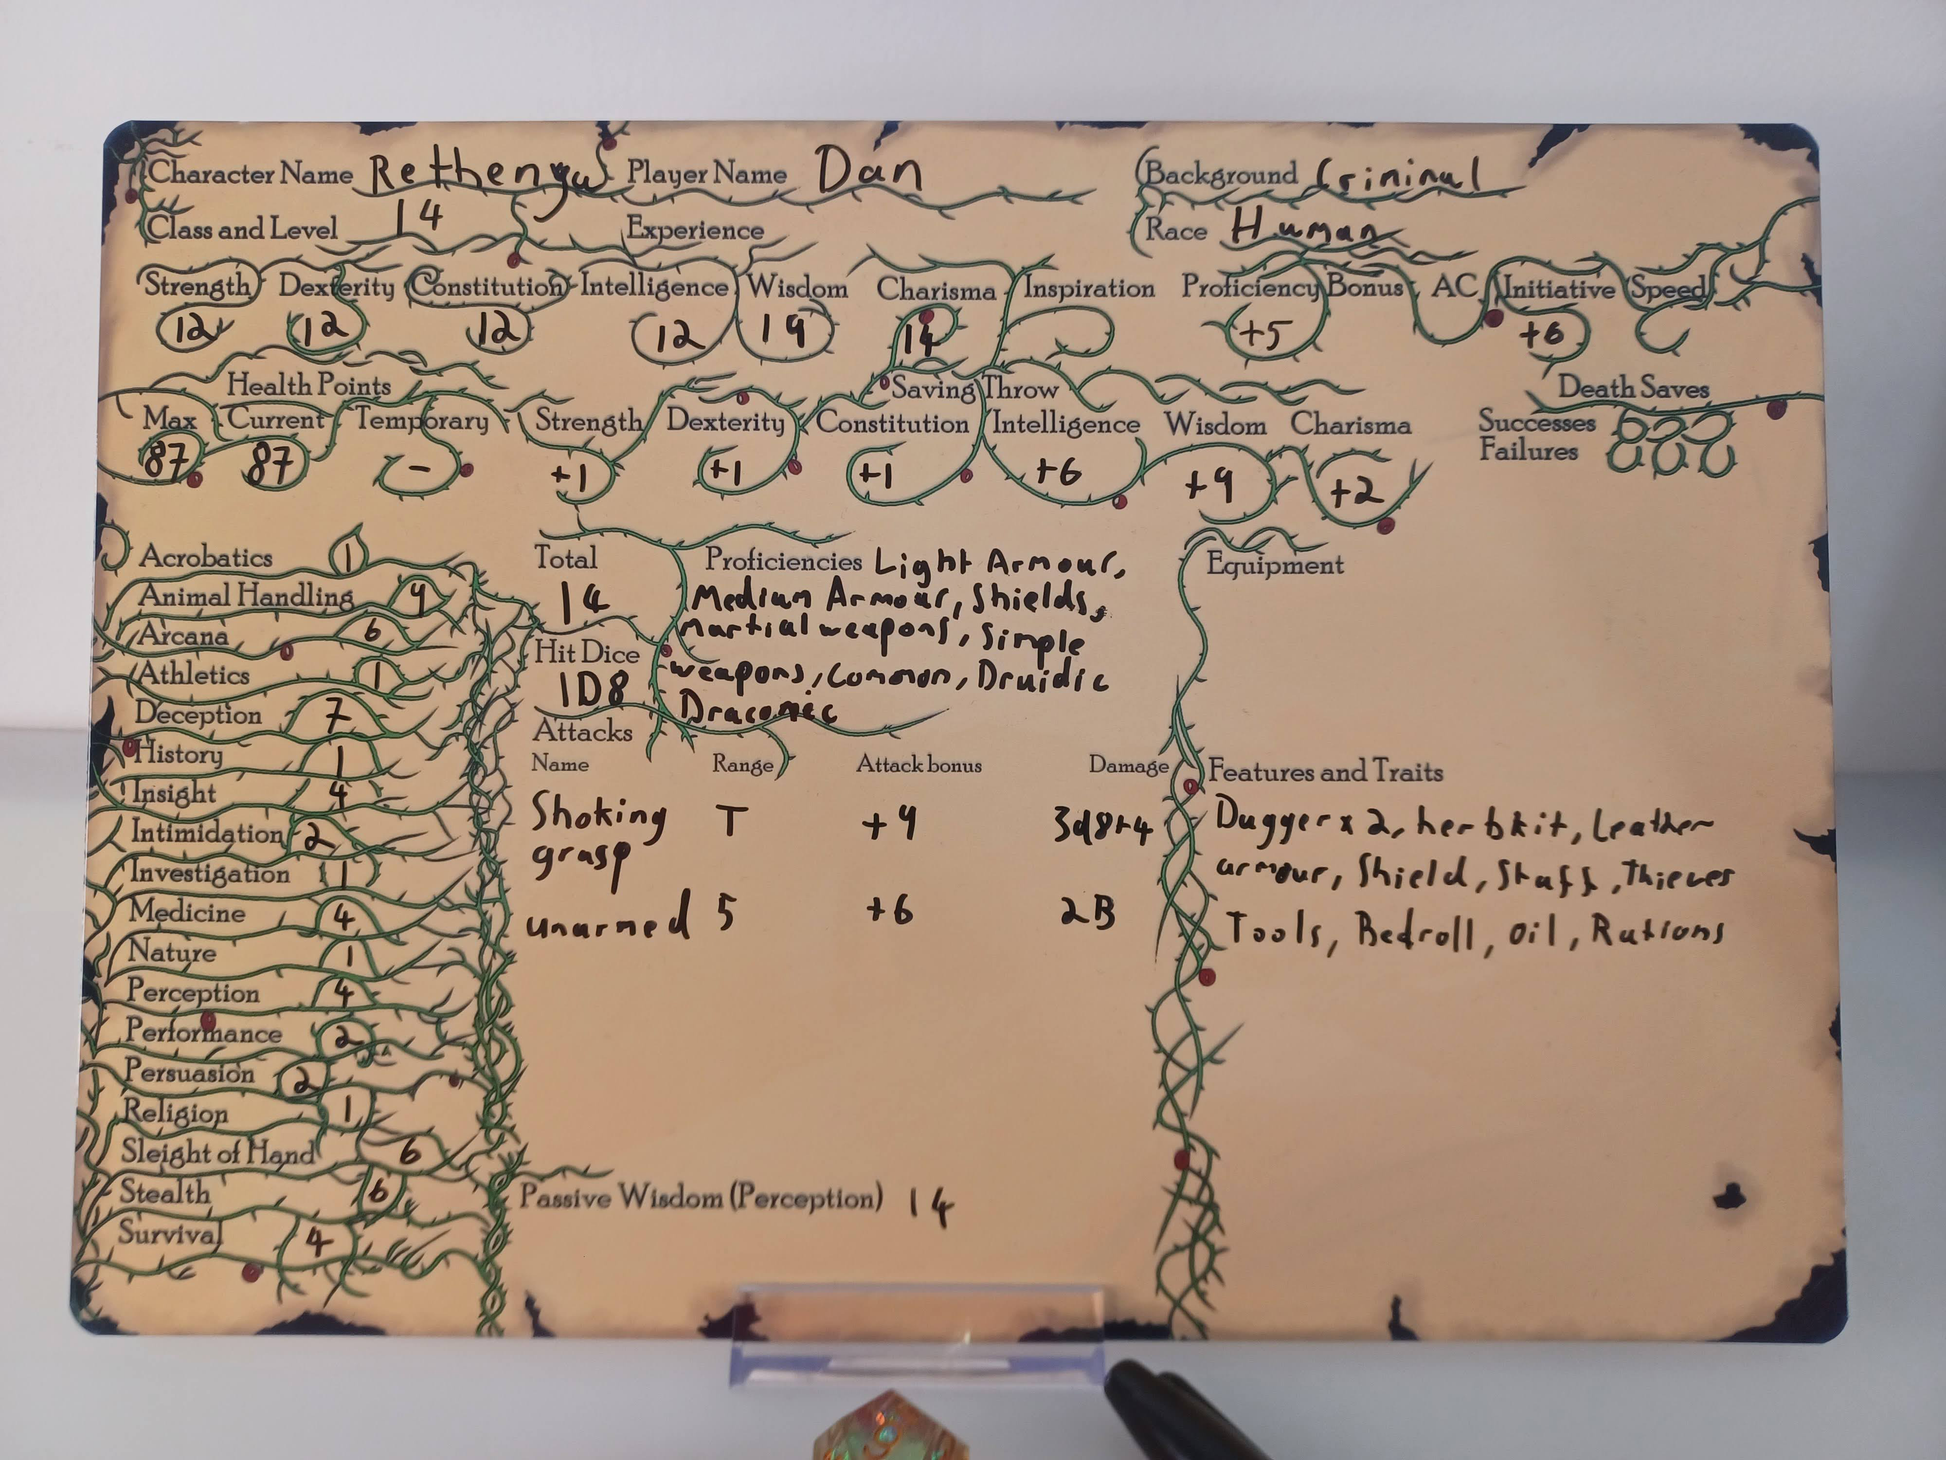 Character Name Rethenya Player Name Dan Background Crininal
Class and Level 14 Experience Race Human
Strength Dexterity Constitution Intelligence Wisdom Charisma Inspiration Proficiency Bonus AC Initiative Speed
12 12 12 12 19 14 +5 +6
Health Points Saving Throw Death Saves
Max Current Temporary Strength Dexterity Constitution Intelligence Wisdom Charisma Successes
87 87 - +1 +1 +1 +6 +9 +2 Failures
Acrobatics 1
Animal Handling 9
Arcana 6
Athletics 1
Deception 7
History 1
Insight 4
Intimidation 2
Investigation 1
Medicine 4
Nature 1
Perception 4
Performance 2
Persuasion 2
Religion 1
Sleight of Hand 6
Stealth 6
Survival 4
Total
14
Hit Dice
1D8
Proficiencies Light Armour,
Medium Armour, Shields,
Martial weapons, Simple
weapons, Common, Druidic
Draconic
Attacks
Name Range Attack bonus Damage
Shoking T +9 3d8+4
grasp
unarmed 5 +6 2B
Passive Wisdom (Perception) 14
Equipment
Features and Traits
Dagger x 2, herbkit, Leather
armour, Shield, Staff, Thieves
Tools, Bedroll, oil, Rations